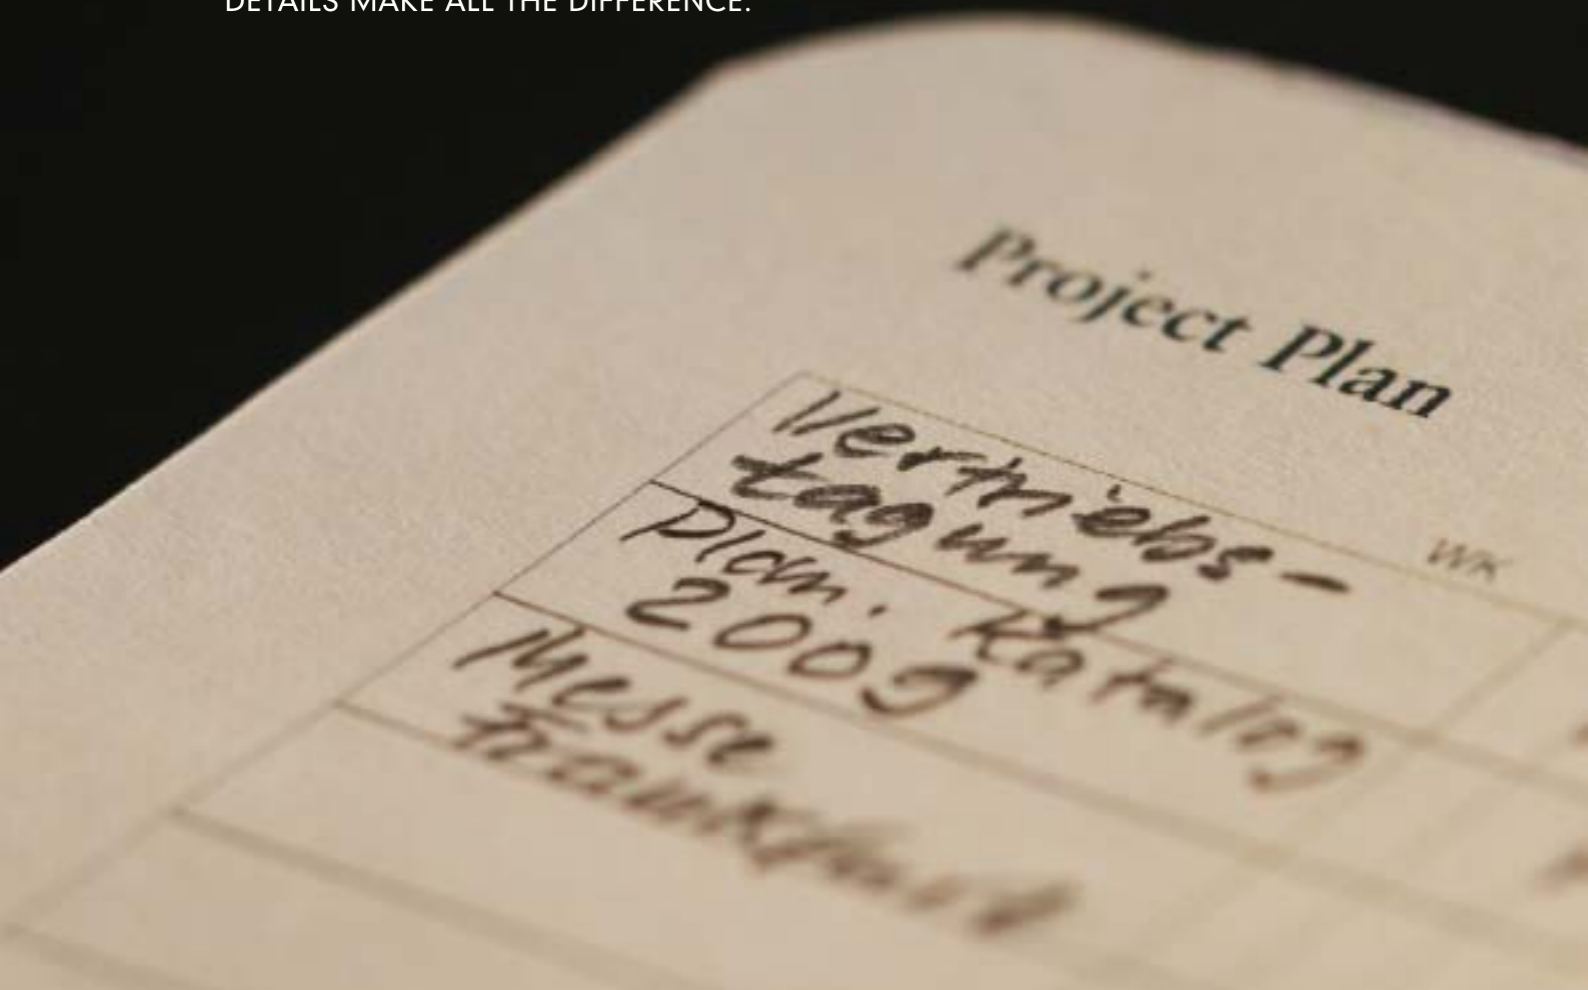 DETAILS MAKE ALL THE DIFFERENCE.
Project Plan
Vertriebs-
tagung
WK
Plan. Katalog
2009
Messe
Frankfurt